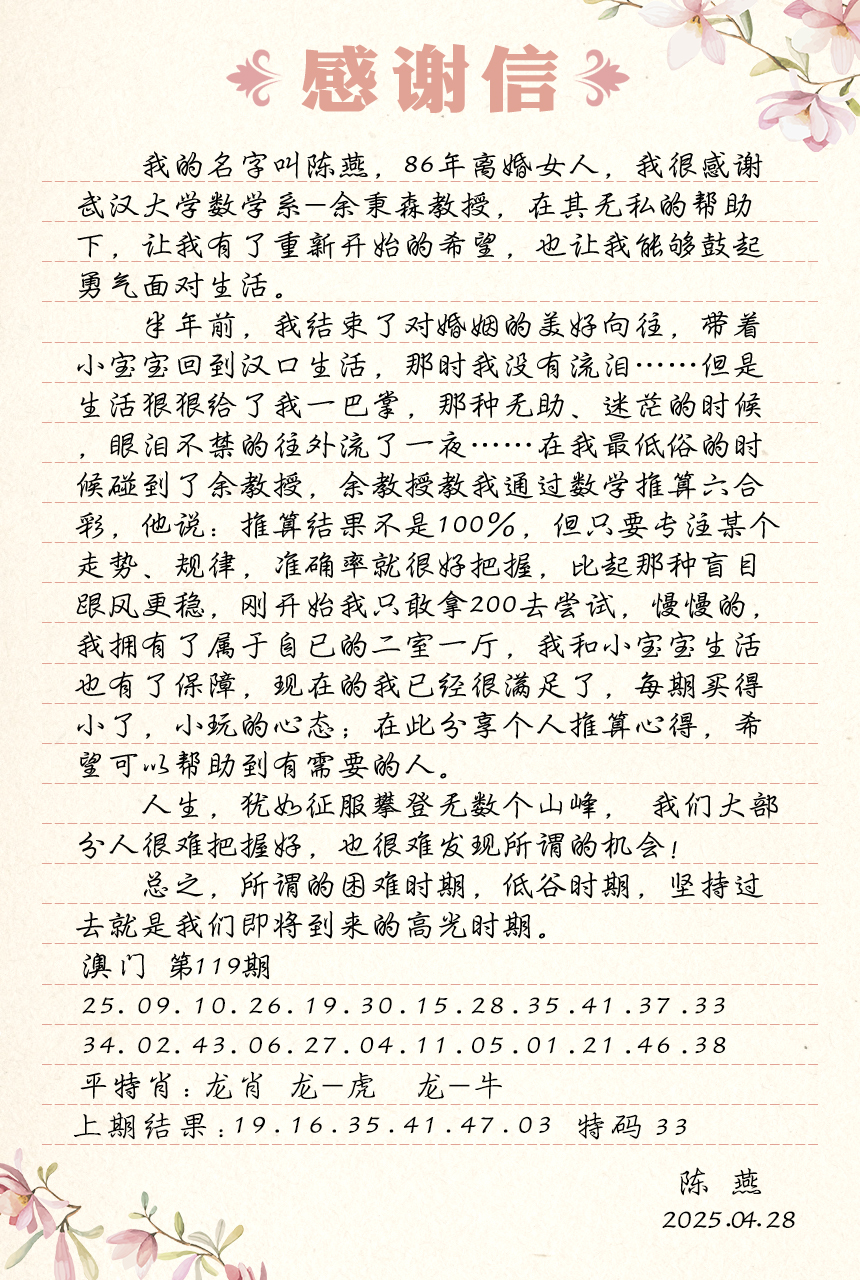 感谢信
我的名字叫陈燕，86年离婚女人，我很感谢
武汉大学数学系—余秉森教授，在其无私的帮助
下，让我有了重新开始的希望，也让我能够鼓起
勇气面对生活。
半年前，我结束了对婚姻的美好向往，带着
小宝宝回到汉口生活，那时我没有流泪……但是
生活狠狠给了我一巴掌，那种无助、迷茫的时候
，眼泪不禁的往外流了一夜……在我最低俗的时
候碰到了余教授，余教授教我通过数学推算六合
彩，他说：推算结果不是100%，但只要专注某个
走势、规律，准确率就很好把握，比起那种盲目
跟风更稳，刚开始我只敢拿200去尝试，慢慢的，
我拥有了属于自已的二室一厅，我和小宝宝生活
也有了保障，现在的我已经很满足了，每期买得
小了，小玩的心态；在此分享个人推算心得，希
望可以帮助到有需要的人。
人生，犹如征服攀登无数个山峰， 我们大部
分人很难把握好，也很难发现所谓的机会！
总之，所谓的困难时期，低谷时期，坚持过
去就是我们即将到来的高光时期。
澳门 第119期
25.09.10.26.19.30.15.28.35.41.37.33
34.02.43.06.27.04.11.05.01.21.46.38
平特肖：龙肖 龙—虎 龙—牛
上期结果：19.16.35.41.47.03 特码 33
陈 燕
2025.04.28